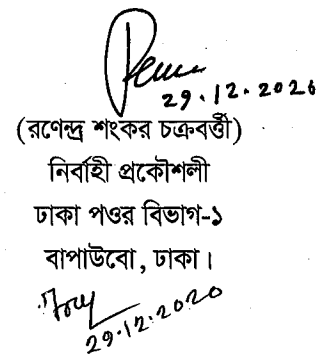 29.12.2020
(রণেন্দ্র শংকর চক্রবর্ত্তী)
নির্বাহী প্রকৌশলী
ঢাকা পওর বিভাগ-১
বাপাউবো, ঢাকা।
29.12.2020